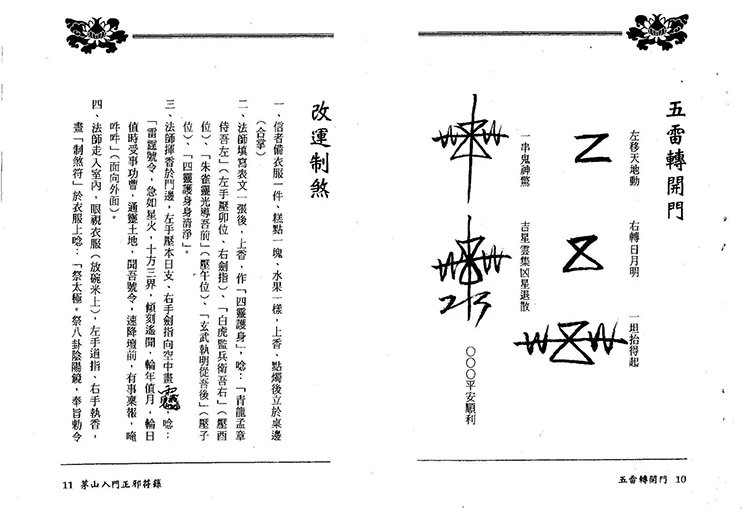 五雷轉開門
左移天地動
右轉日月明
一坦抬得起
一串鬼神驚
吉星雲集凶星退散
○○○平安順利
五雷轉開門 10
改運制煞
一、信者備衣服一件、糕點一塊、水果一樣，上香、點燭後立於桌邊
（合掌）
二、法師填寫表文一張後，上香，作「四靈護身」，唸：「青龍孟章
侍吾左」（左手壓卯位、右劍指）、「白虎監兵衛吾右」（壓酉
位）、「朱雀靈光導吾前」（壓午位）、「玄武執明從吾後」（壓子
位）、「四靈護身身清淨」。
三、法師揮香於門邊，左手壓本日支、右手劍指向空中畫，唸：
「雷霆號令，急如星火，十方三界，傾刻遙聞，輪年值月，輪日
值時受事功曹，通靈土地，聞吾號令，速降壇前，有事稟報，唵
吽吽」（面向外面）。
四、法師走入室內，眼視衣服（放碗米上），左手道指、右手執香，
畫「制煞符」於衣服上唸：「祭太極。祭八卦陰陽鏡，奉旨勅令
11 茅山入門正邪符籙